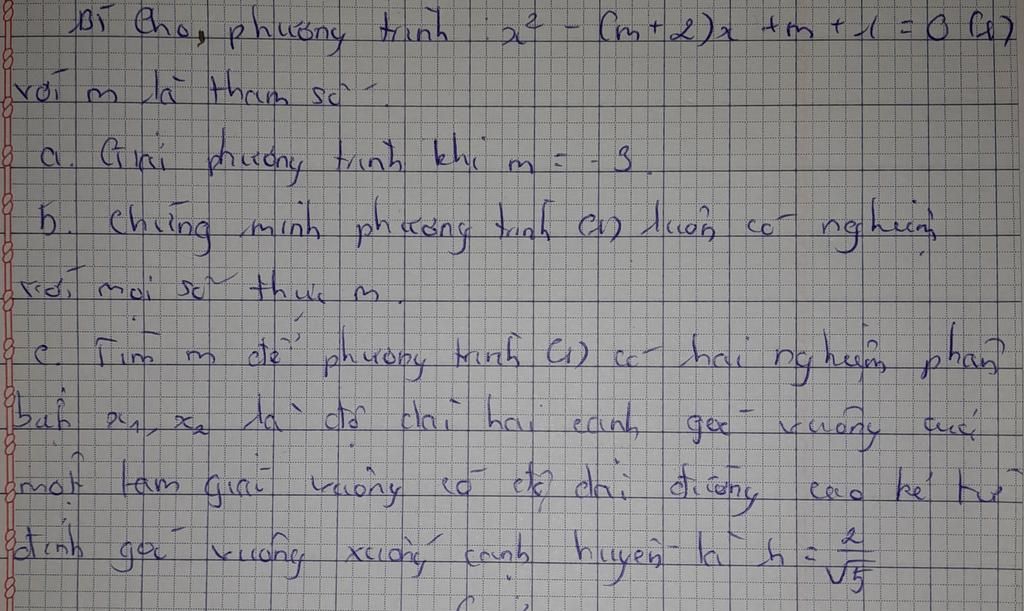 Bì Cho, phương trình x² - (m+2)x + m + 1 = 0 (1)
với m là tham số
a. Giải phương trình khi m = -3.
b. Chứng minh phương trình (1) luôn có nghiệm
với mọi số thực m.
c. Tìm m để phương trình (1) có hai nghiệm phân
biệt x₁, x₂ là độ dài hai cạnh góc vuông của
một tam giác vuông có độ dài đường cao kẻ từ
đỉnh góc vuông xuống cạnh huyền là h = 2/√5